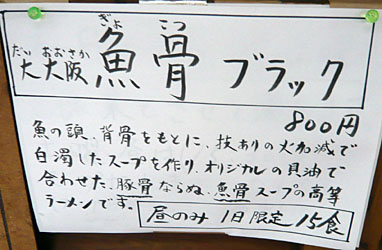 だい おおさか ぎょ こつ
大大阪 魚骨 ブラック
800円
魚の頭、背骨をもとに、技ありの火加減で
白濁したスープを作り、オリジナルの貝油で
合わせた、豚骨ならぬ、魚骨スープの高等
ラーメンです。
昼のみ 1日限定 15食